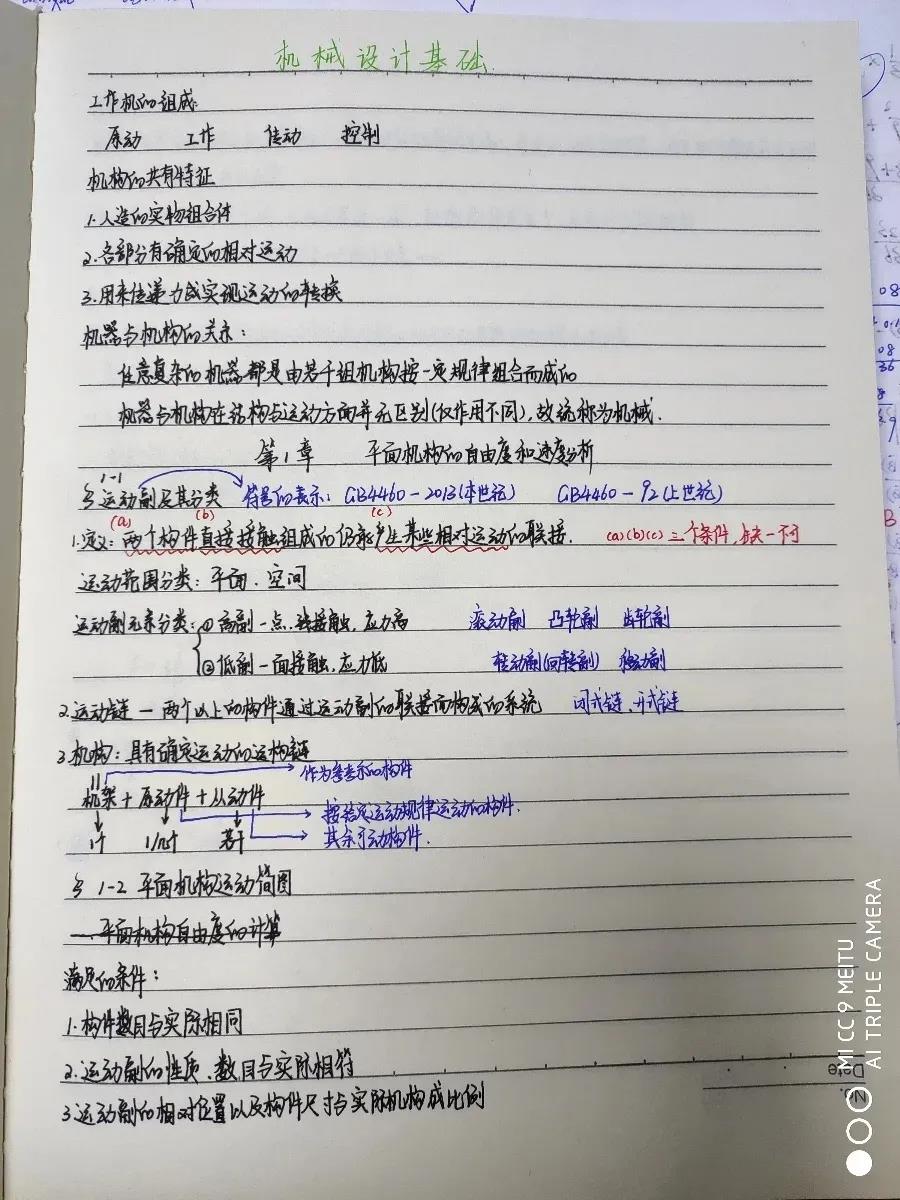 机械设计基础
工作机的组成:
原动 工作 传动 控制
机构的共有特征
1.人造的实物组合体
2.各部分有确定的相对运动
3.用来传递力或实现运动的转换
机器与机构的关系:
任意复杂的机器都是由若干组机构按一定规律组合而成的
机器与机构在结构与运动方面并无区别(仅作用不同),故统称为机械.
第1章 平面机构的自由度和速度分析
§1-1 运动副及其分类 符号的表示: GB4460-2013(本世纪) GB4460-92(上世纪)
(a) (b) (c)
1.定义: 两个构件直接接触组成的仍能产生某些相对运动的联接. (a)(b)(c)三个条件,缺一不可
运动范围分类: 平面、空间
运动副元素分类: ①高副-点、线接触,应力高 滚动副 凸轮副 齿轮副
②低副-面接触,应力低 转动副(回转副) 移动副
2.运动链-两个以上的构件通过运动副的联接而构成的系统 闭式链、开式链
3.机构: 具有确定运动的运构链
作为参考系的构件
机架+原动件+从动件
按给定运动规律运动的构件.
1个 1/几个 若干 其余可动构件.
§1-2 平面机构运动简图
一.平面机构自由度的计算
满足的条件:
1.构件数目与实际相同
2.运动副的性质、数目与实际相符
3.运动副的相对位置以及构件尺寸与实际机构成比例
Date
No.
MI CC 9 MEITU
AI TRIPLE CAMERA